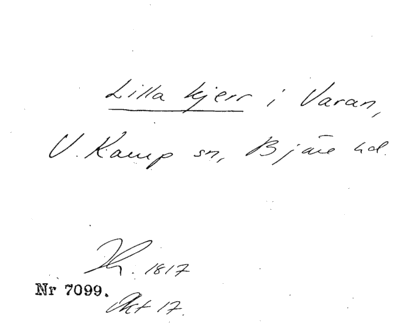 Lilla kjerr i Varan,
V. Karup sn, Bjäre hd.
1817
Nr 7099.
Akt 17.